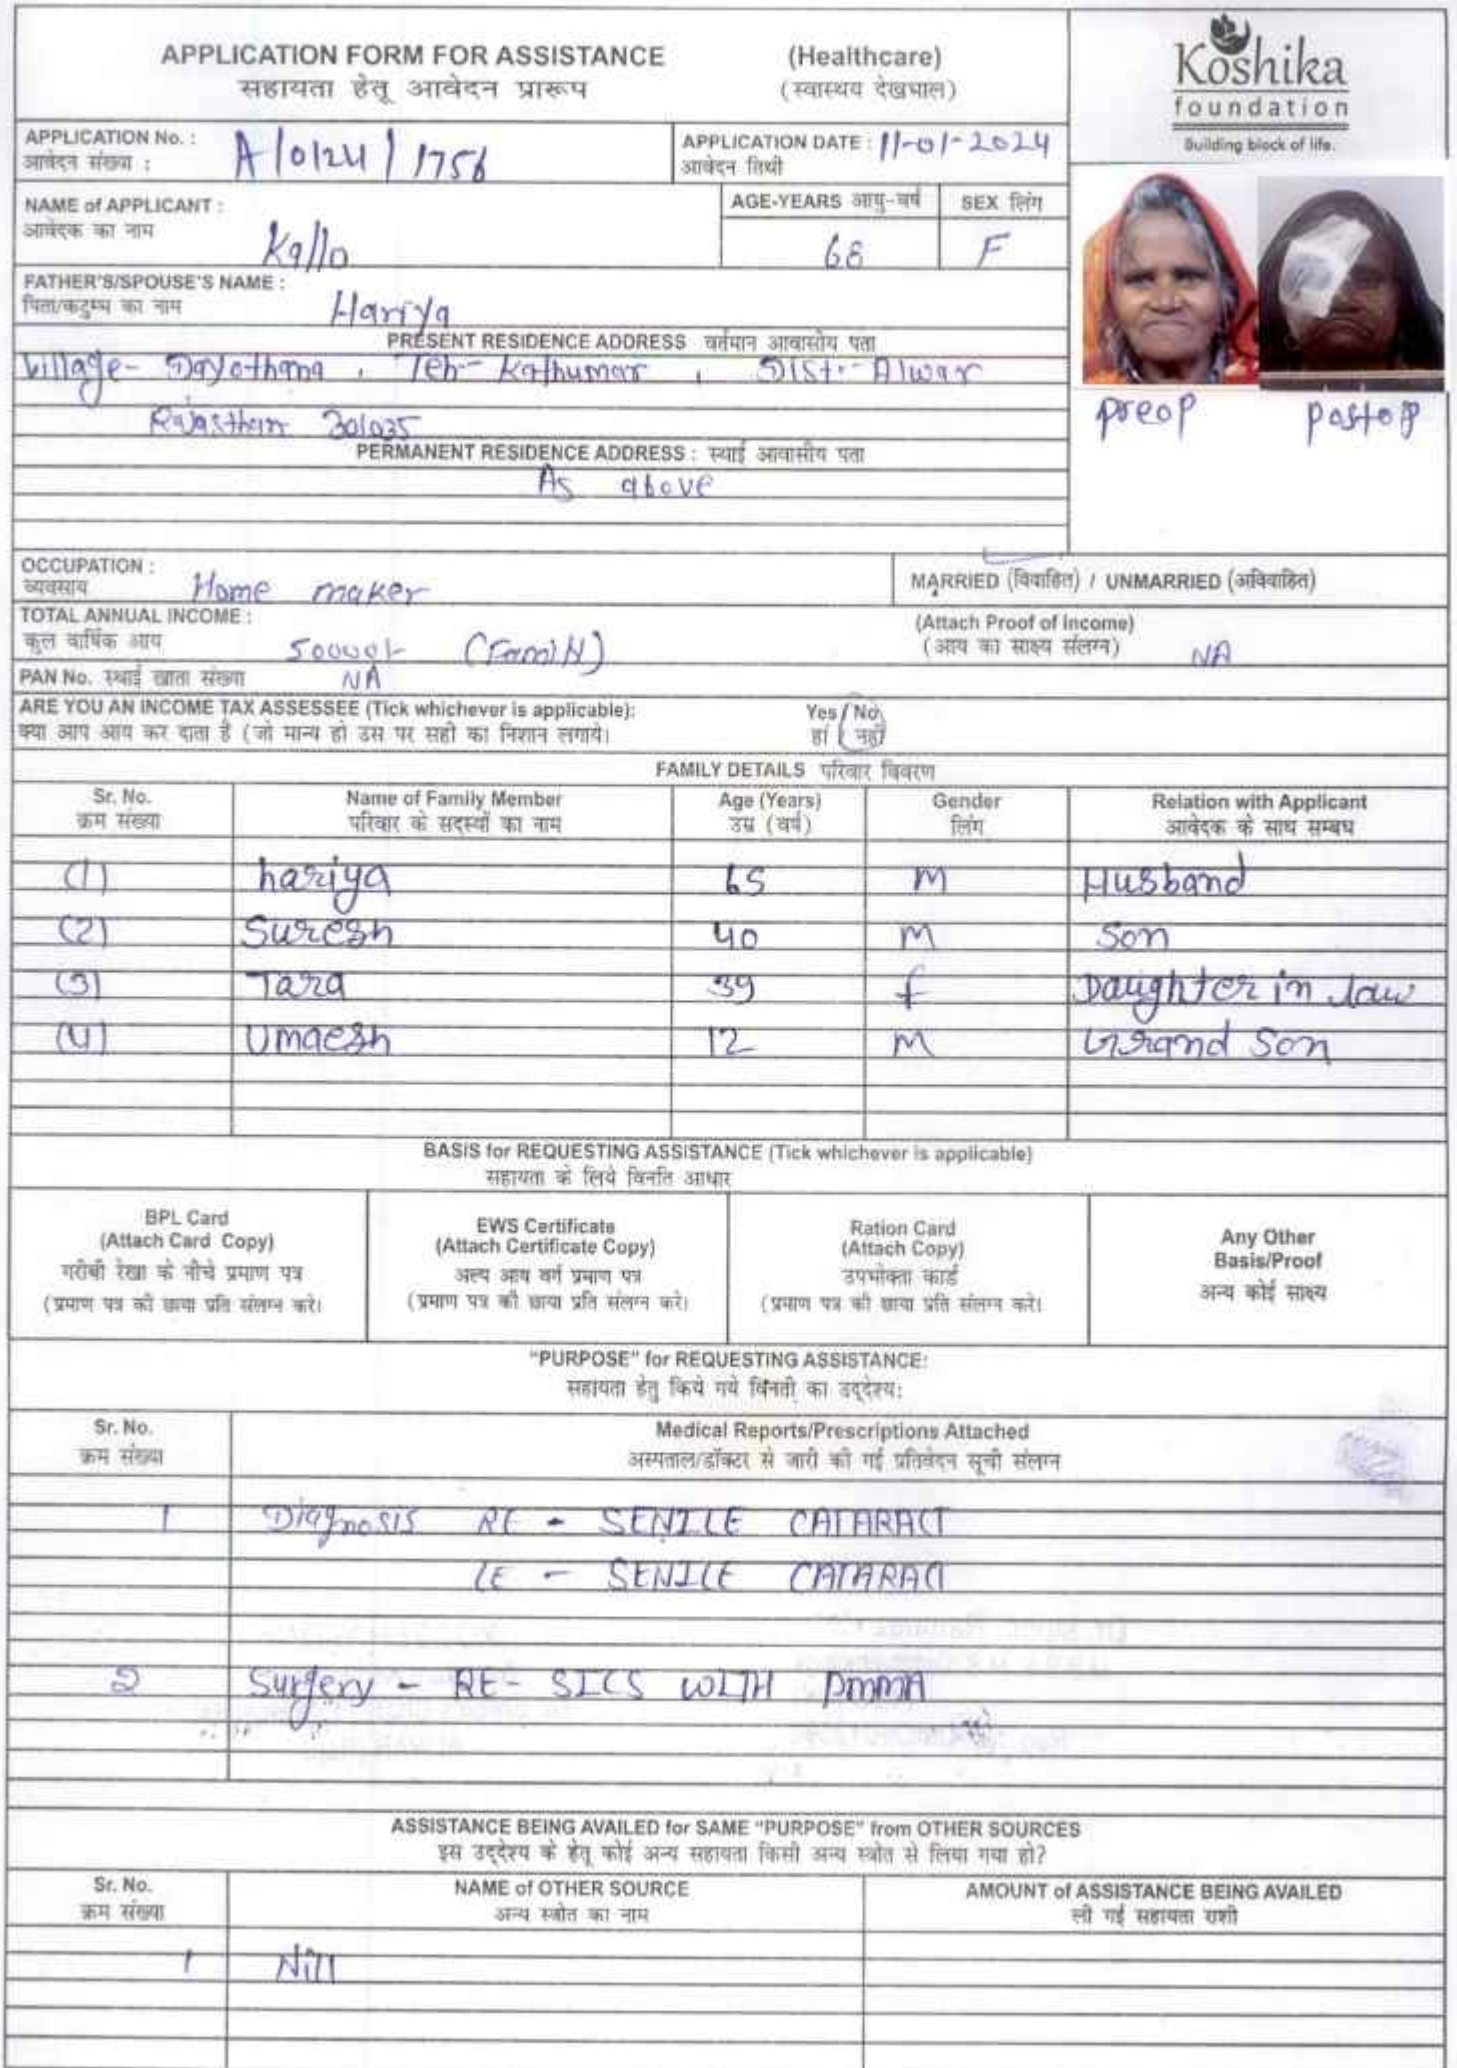 APPLICATION FORM FOR ASSISTANCE (Healthcare)
सहायता हेतू आवेदन प्रारूप (स्वास्थय देखभाल)
Koshika
foundation
Building block of life.
APPLICATION No. : A/0124/1756 APPLICATION DATE : 11-01-2024
आवेदन संख्या : आवेदन तिथी
NAME of APPLICANT : Kallo AGE-YEARS आयु-वर्ष SEX लिंग
आवेदक का नाम 68 F
FATHER'S/SPOUSE'S NAME : Hariya
पिता/कटुम्ब का नाम
PRESENT RESIDENCE ADDRESS वर्तमान आवासीय पता
Village- Dayothana , Teh- Kathumar , Dist:- Alwar
Rajasthan 301035
preop postop
PERMANENT RESIDENCE ADDRESS : स्थाई आवासीय पता
As above
OCCUPATION : Home maker MARRIED (विवाहित) / UNMARRIED (अविवाहित)
व्यवसाय
TOTAL ANNUAL INCOME : (Attach Proof of Income)
कुल वार्षिक आय 50000/- (Family) (आय का साक्ष्य संलग्न) NA
PAN No. स्थाई खाता संख्या NA
ARE YOU AN INCOME TAX ASSESSEE (Tick whichever is applicable): Yes / No
क्या आप आय कर दाता है (जो मान्य हो उस पर सही का निशान लगाये। हां / नहीं
FAMILY DETAILS परिवार विवरण
Sr. No. Name of Family Member Age (Years) Gender Relation with Applicant
क्रम संख्या परिवार के सदस्यों का नाम उम्र (वर्ष) लिंग आवेदक के साथ सम्बध
(1) hariya 65 M Husband
(2) Suresh 40 M Son
(3) Tara 39 f Daughter in law
(4) Umaesh 12 M Grand Son
BASIS for REQUESTING ASSISTANCE (Tick whichever is applicable)
सहायता के लिये विनति आधार
BPL Card
(Attach Card Copy)
गरीबी रेखा के नीचे प्रमाण पत्र
(प्रमाण पत्र की छाया प्रति संलग्न करे।
EWS Certificate
(Attach Certificate Copy)
अल्प आय वर्ग प्रमाण पत्र
(प्रमाण पत्र की छाया प्रति संलग्न करे।
Ration Card
(Attach Copy)
उपभोक्ता कार्ड
(प्रमाण पत्र की छाया प्रति संलग्न करे।
Any Other
Basis/Proof
अन्य कोई साक्ष्य
"PURPOSE" for REQUESTING ASSISTANCE:
सहायता हेतु किये गये विनती का उद्देश्य:
Sr. No. Medical Reports/Prescriptions Attached
क्रम संख्या अस्पताल/डॉक्टर से जारी की गई प्रतिवेदन सूची संलग्न
1 Diagnosis RE - SENILE CATARACT
LE - SENILE CATARACT
2 Surgery - RE- SICS WITH PMMA
ASSISTANCE BEING AVAILED for SAME "PURPOSE" from OTHER SOURCES
इस उद्देश्य के हेतू कोई अन्य सहायता किसी अन्य स्त्रोत से लिया गया हो?
Sr. No. NAME of OTHER SOURCE AMOUNT of ASSISTANCE BEING AVAILED
क्रम संख्या अन्य स्त्रोत का नाम ली गई सहायता राशी
1 Nill